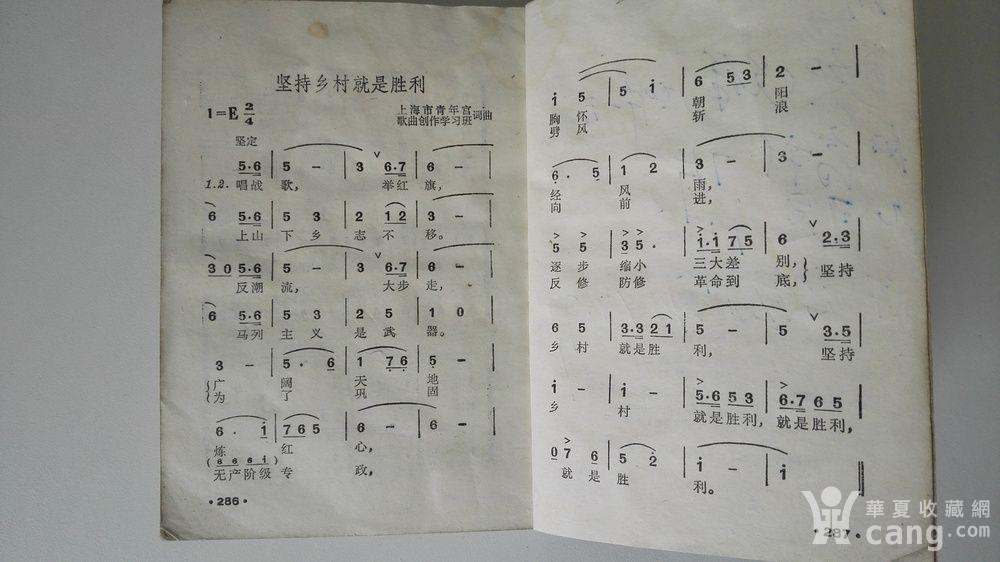 坚持乡村就是胜利
1=E 2/4
上海市青年宫
歌曲创作学习班 词曲
坚定
5·6 | 5 – | 3 6·7 | 6 – |
1.2. 唱战 歌, 举红 旗,
6 5·6 | 5 3 | 2 12 | 3 – |
上山 下 乡 志 不 移。
30 5·6 | 5 – | 3 6·7 | 6 – |
反潮 流, 大步 走,
6 5·6 | 5 3 | 2 5 | 1 0 |
马列 主 义 是 武 器。
3 – | 5· 6 | 1 76 | 5 – |
广 阔 天 地
为 了 巩 固
6· i | 765 | 6 – | 6 – |
炼 红 心,
(6 6 6 i)
无产阶级 专 政,
·286·
i 5 | 5 i | 6 53 | 2 – |
胸 怀 朝 阳
劈 风 斩 浪
6· 5 | 1 2 | 3 – | 3 – |
经 风 雨,
向 前 进,
5 5 | 3 5 | i·i 75 | 6 2·3 |
逐 步 缩小 三大差 别, 坚持
反 修 防修 革命到 底,
6 5 | 3·3 21 | 5 – | 5 3·5 |
乡 村 就是胜 利, 坚持
i – | i – | 5·6 53 | 6·7 65 |
乡 村 就是胜利, 就是胜利,
0 7 6 | 5 2 | i – | i
就 是 胜 利。
·287·
華夏收藏網
cang.com